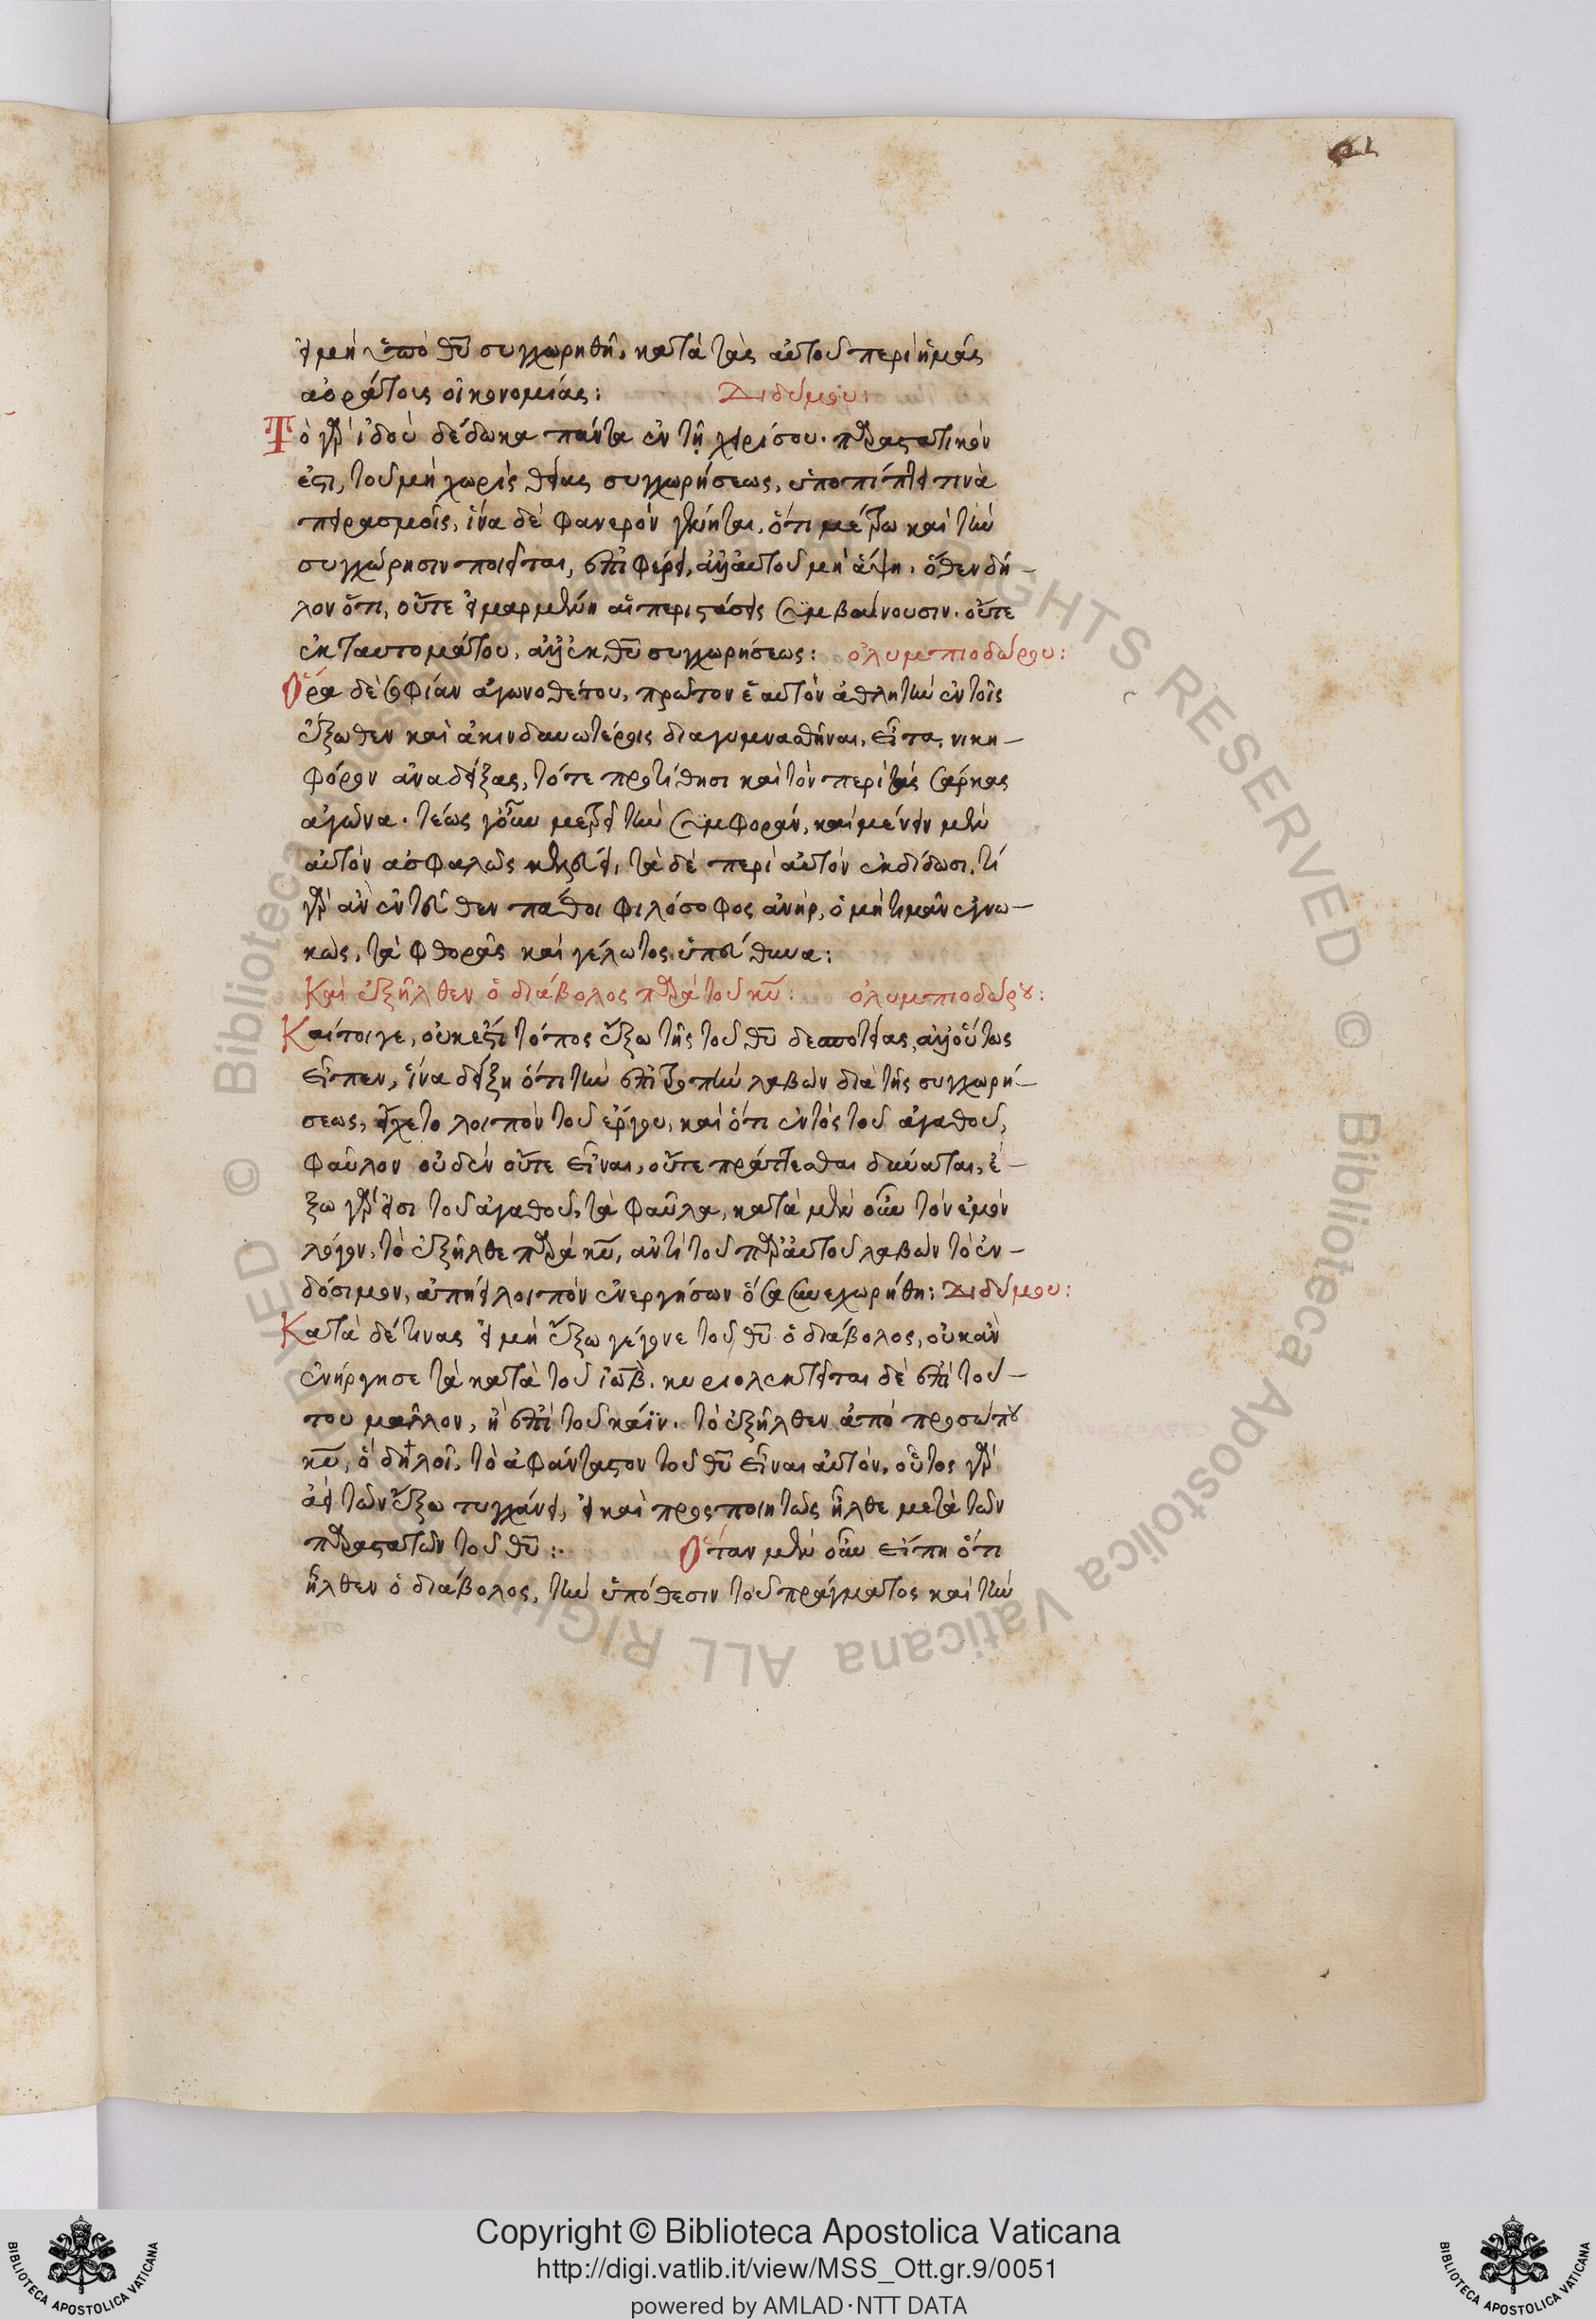 εἰ μὴ ὑπὸ θ̅υ̅ συγχωρηθῇ, κατὰ τὰς αὐτοῦ περὶ ἡμᾶς
ἀοράτους οἰκονομίας: Διδύμου:
Τὸ γὰρ ἰδοὺ δέδωκα πάντα ἐν τῇ χειρί σου. παραστατικόν
ἐστι, τοῦ μὴ χωρὶς θείας συγχωρήσεως, ὑποπίπτειν τινὰ
πειρασμοῖς, ἵνα δὲ φανερὸν γένηται, ὅτι μέτρω καὶ τὴν
συγχώρησιν ποιεῖται, ἐπιφέρει, ἀλλ' αὐτοῦ μὴ ἅψη. ὅθεν δῆ-
λον ὅτι, οὔτε εἱμαρμένη αἱ περιστάσεις συμβαίνουσιν. οὔτε
ἐκ ταυτομάτου, ἀλλ' ἐκ θ̅υ̅ συγχωρήσεως: ὀλυμπιοδώρου:
Ὅρα δὲ σοφίαν ἀγωνοθέτου, πρῶτον ἑαυτὸν ἀθλητὴν ἐν τοῖς
ἔξωθεν καὶ ἀκινδυνωτέροις διαγυμνασθῆναι, εἶτα, νικη-
φόρον ἀναδείξας, τότε προτίθησι καὶ τὸν περὶ τὰς σάρκας
ἀγῶνα. τέως γοῦν μετρεῖ τὴν συμφοράν, καὶ μένειν μὲν
αὐτὸν ἀσφαλῶς κελεύει, τὰ δὲ περὶ αὐτὸν ἐκδίδωσι. τί
γὰρ ἂν ἐντεῦθεν πάθοι φιλόσοφος ἀνήρ, ὁ μὴ τιμᾶν ἐγνω-
κὼς, τὰ φθορᾶς καὶ γέλωτος ὑπεύθυνα:
Καὶ ἐξῆλθεν ὁ διάβολος παρὰ τοῦ κ̅υ̅: ὀλυμπιοδώρου:
Καίτοιγε, οὐκ ἔστι τόπος ἔξω τῆς τοῦ θ̅υ̅ δεσποτείας, ἀλλ' οὕτως
εἶπεν, ἵνα δείξη ὅτι τὴν ἐπιτροπὴν λαβὼν διὰ τῆς συγχωρή-
σεως, εἴχετο λοιπὸν τοῦ ἔργου, καὶ ὅτι ἐντὸς τοῦ ἀγαθοῦ,
φαῦλον οὐδὲν οὔτε εἶναι, οὔτε πράττεσθαι δύναται, ἔ-
ξω γάρ εἰσι τοῦ ἀγαθοῦ, τὰ φαῦλα, κατὰ μὲν οὖν τὸν ἐμὸν
λόγον, τὸ ἐξῆλθε παρὰ κ̅υ̅, ἀντὶ τοῦ παρ' αὐτοῦ λαβὼν τὸ ἐν-
δόσιμον, ἀπῄει λοιπὸν ἐνεργήσων ὅσα συνεχωρήθη: Διδύμου:
Κατὰ δέ τινας εἰ μὴ ἔξω γέγονε τοῦ θ̅υ̅ ὁ διάβολος, οὐκ ἂν
ἐνήργησε τὰ κατὰ τοῦ ἰὼβ. κυριολεκτεῖται δὲ ἐπὶ τού-
του μᾶλλον, ἢ ἐπὶ τοῦ κάϊν. τὸ ἐξῆλθεν ἀπὸ προσώπου
κ̅υ̅, ὃ δηλοῖ, τὸ ἀφάνταστον τοῦ θ̅υ̅ εἶναι αὐτόν, οὗτος γὰρ
ἀεὶ τῶν ἔξω τυγχάνει, εἰ καὶ προσποιητῶς ἦλθε μετὰ τῶν
παραστατῶν τοῦ θ̅υ̅:. Ὅταν μὲν οὖν εἴπη ὅτι
ἦλθεν ὁ διάβολος, τὴν ὑπόθεσιν τοῦ πράγματος καὶ τὴν
Copyright © Biblioteca Apostolica Vaticana
http://digi.vatlib.it/view/MSS_Ott.gr.9/0051
powered by AMLAD·NTT DATA